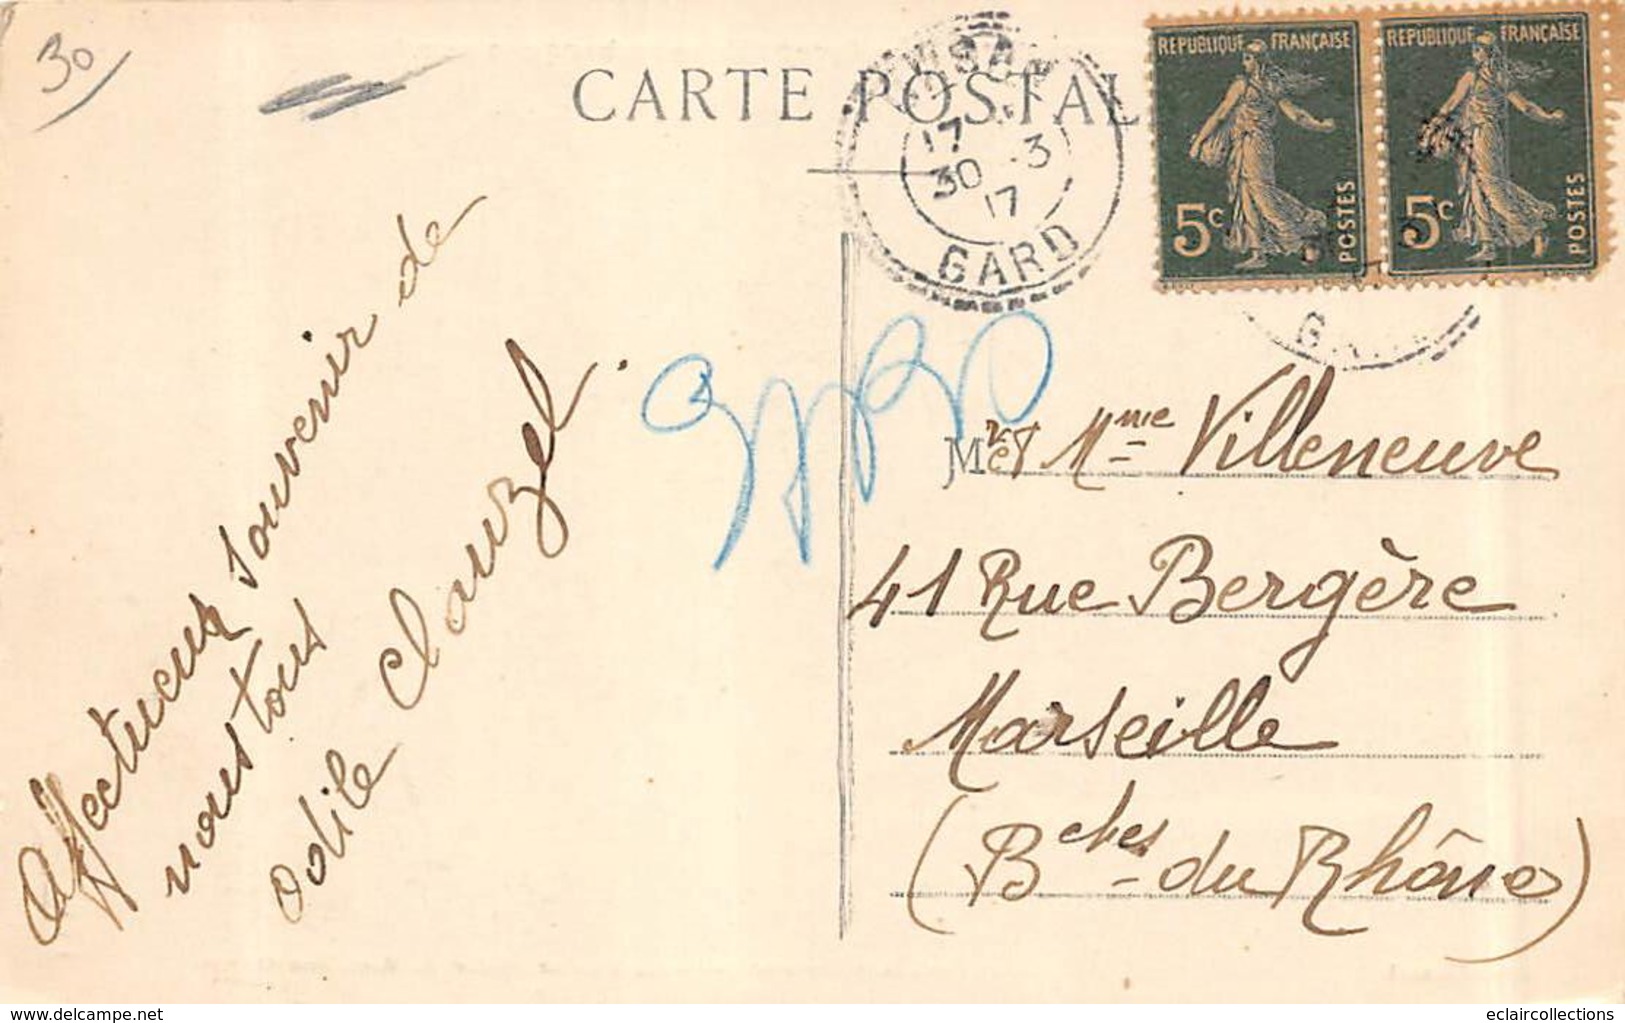 30
CARTE POSTAL
LUSSAN
17
30 - 3
17
GARD
REPUBLIQUE FRANÇAISE
5c POSTES
REPUBLIQUE FRANÇAISE
5c POSTES
Affectueux souvenir de
nous tous
Odile Clauzel.
Mr et Mme Villeneuve
41 Rue Bergère
Marseille
(Bches du Rhône)
www.delcampe.net
eclaircollections